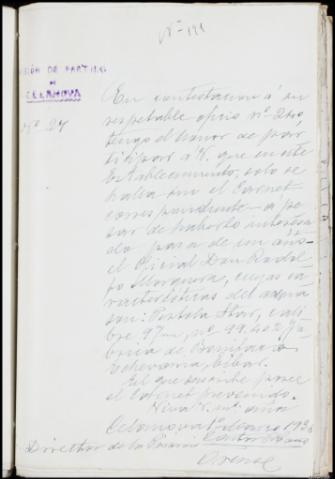 Nº 191
PRISIÓN DE PARTIDO
DE
CELANOVA
Nº 27
En contestacion á su
respetable oficio nº 260,
tengo el honor de par-
ticipar á V. que en este
Establecimiento, solo se
halla sin el Carnet
correspondiente a pe-
sar de haberlo interesa-
do pasa de un año,
el Oficial Don Rodol-
fo Mosquera, cuyas ca-
racterísticas del arma
son: Pistola Star, cali-
bre nº 99.402 fá-
brica de Bonifacio
Echevarria, Eibar.
El que suscribe posee
el Carnet prevenido.
Viva V. ms. años
Celanova marzo 1936
Director de la Prisión
Orense